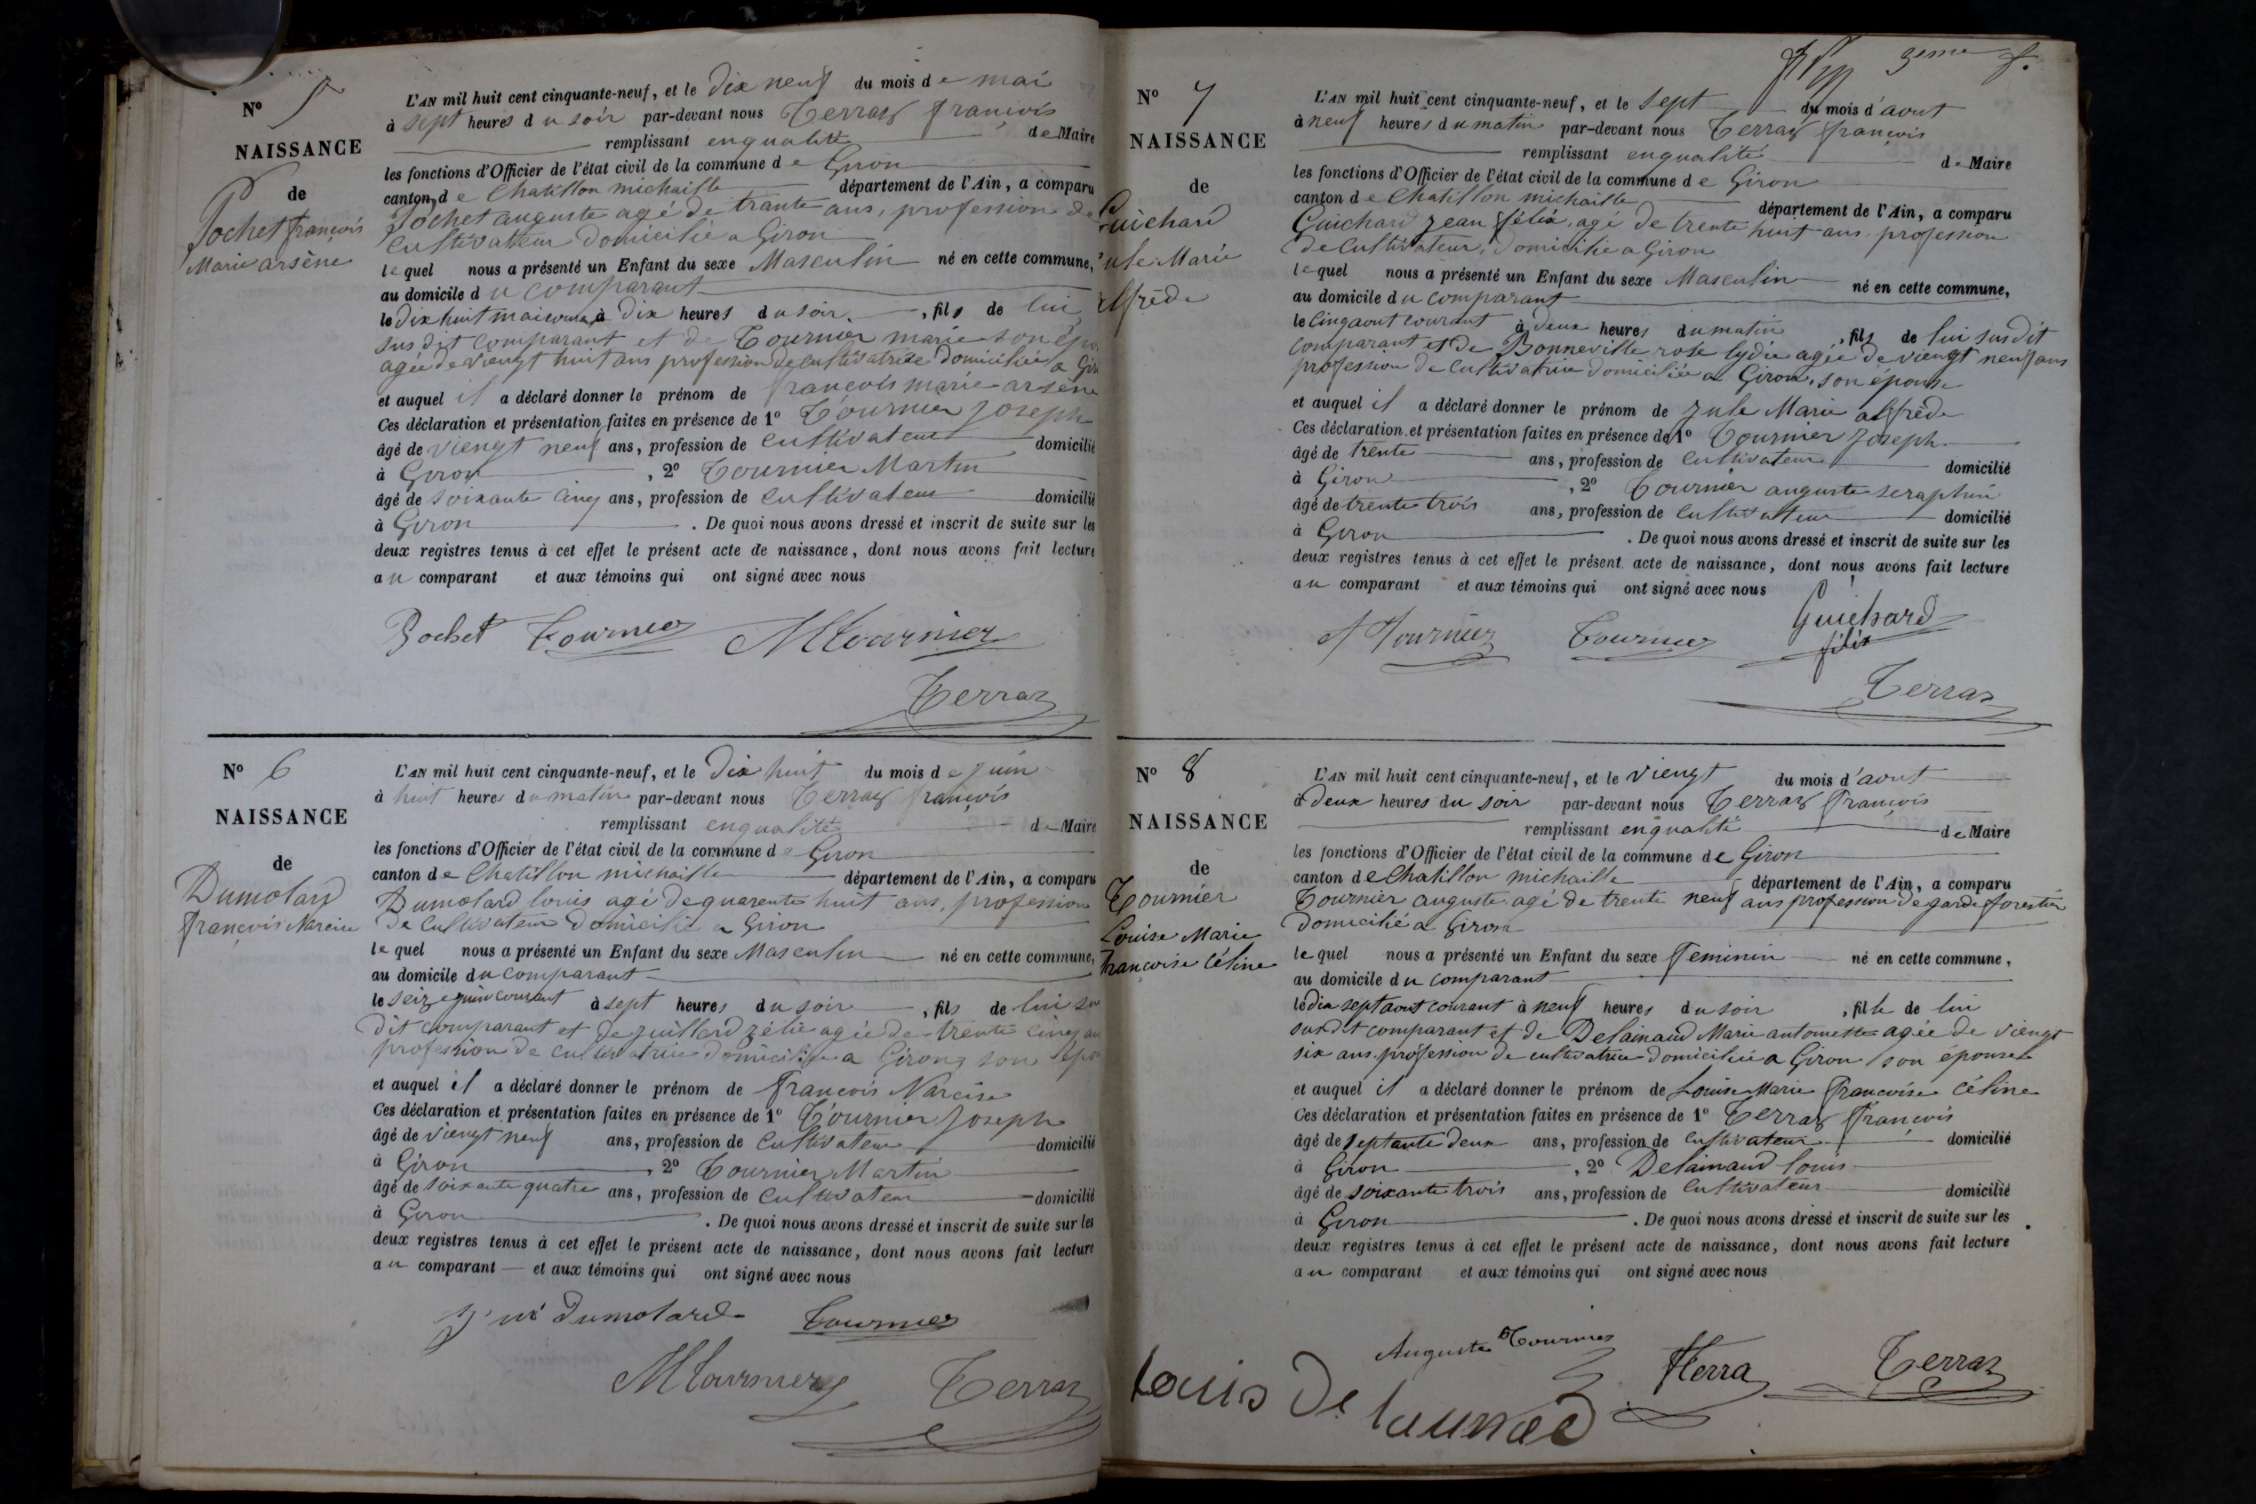 N° 5
NAISSANCE
de
Pochet françois
Marie arsène
L'AN mil huit cent cinquante-neuf, et le dix neuf du mois de mai
à sept heures du soir par-devant nous Terraz françois
remplissant enqualité de Maire
les fonctions d'Officier de l'état civil de la commune de Giron
canton de Chatillon michaille département de l'Ain, a comparu
Pochet auguste agé de trante ans, profession de
Cultivateur domicilié a Giron
lequel nous a présenté un Enfant du sexe Masculin né en cette commune,
au domicile du comparant
le dix huit mai courant à dix heures du soir, fils de lui
susdit comparant et de Tournier marie son épo
agée de viengt huit ans profession de cultivatrice domiciliée a Gir
et auquel il a déclaré donner le prénom de françois marie arsène
Ces déclaration et présentation faites en présence de 1° Tournier Joseph
âgé de viengt neuf ans, profession de Cultivateur domicilié
à Giron, 2° Tournier Martin
âgé de soixante cinq ans, profession de Cultivateur domicilié
à Giron. De quoi nous avons dressé et inscrit de suite sur les
deux registres tenus à cet effet le présent acte de naissance, dont nous avons fait lecture
au comparant et aux témoins qui ont signé avec nous
Pochet Tournier MTournier
Terraz
N° 6
NAISSANCE
de
Dumolard
françois Narcise
L'AN mil huit cent cinquante-neuf, et le dix huit du mois de juin
à huit heures du matin par-devant nous Terraz françois
remplissant enqualité de Maire
les fonctions d'Officier de l'état civil de la commune de Giron
canton de Chatillon michaille département de l'Ain, a comparu
Dumolard louis agé de quarente huit ans, profession
de Cultivateur domicilié a Giron
lequel nous a présenté un Enfant du sexe Masculin né en cette commune,
au domicile du comparant
le seize juin courant à sept heures du soir, fils de lui sus
dit comparant et de juillard zélie agée de trente cinq ans
profession de cultivatrice domiciliée a Giron son épo
et auquel il a déclaré donner le prénom de françois Narcise
Ces déclaration et présentation faites en présence de 1° Tournier Joseph
âgé de viengt neuf ans, profession de Cultivateur domicilié
à Giron, 2° Tournier Martin
âgé de soixante quatre ans, profession de Cultivateur domicilié
à Giron. De quoi nous avons dressé et inscrit de suite sur les
deux registres tenus à cet effet le présent acte de naissance, dont nous avons fait lecture
au comparant et aux témoins qui ont signé avec nous
Dumolard Tournier
MTournier Terraz
3eme f.
N° 7
NAISSANCE
de
Guichard
Jule Marie
alfrède
L'AN mil huit cent cinquante-neuf, et le sept du mois d'aout
à neuf heures du matin par-devant nous Terraz françois
remplissant enqualité de Maire
les fonctions d'Officier de l'état civil de la commune de Giron
canton de Chatillon michaille département de l'Ain, a comparu
Guichard jean félix, agé de trente huit ans profession
de Cultivateur, domicilié a Giron
lequel nous a présenté un Enfant du sexe Masculin né en cette commune,
au domicile du comparant
le cinq aout courant à deux heures du matin, fils de lui susdit
comparant et de Bonneville rose lydie agée de viengt neuf ans
profession de cultivatrice domiciliée a Giron, son épouse
et auquel il a déclaré donner le prénom de Jule Marie alfrède
Ces déclaration et présentation faites en présence de 1° Tournier Joseph
âgé de trente ans, profession de Cultivateur domicilié
à Giron, 2° Tournier auguste seraphin
âgé de trente trois ans, profession de Cultivateur domicilié
à Giron. De quoi nous avons dressé et inscrit de suite sur les
deux registres tenus à cet effet le présent acte de naissance, dont nous avons fait lecture
au comparant et aux témoins qui ont signé avec nous
Tournier Tournier Guichard
félix
Terraz
N° 8
NAISSANCE
de
Tournier
Louise Marie
françoise Céline
L'AN mil huit cent cinquante-neuf, et le viengt du mois d'aout
à deux heures du soir par-devant nous Terraz François
remplissant enqualité de Maire
les fonctions d'Officier de l'état civil de la commune de Giron
canton de Chatillon michaille département de l'Ain, a comparu
Tournier auguste agé de trente neuf ans profession de garde forestier
domicilié a Giron
lequel nous a présenté un Enfant du sexe Feminin né en cette commune,
au domicile du comparant
le dix sept aout courant à neuf heures du soir, fille de lui
susdit comparant et de Delainaud Marie antoinette agée de viengt
six ans profession de cultivatrice domiciliée a Giron son épouse
et auquel il a déclaré donner le prénom de Louise Marie françoise Céline
Ces déclaration et présentation faites en présence de 1° Terraz François
âgé de septante deux ans, profession de Cultivateur domicilié
à Giron, 2° Delainaud louis
âgé de soixante trois ans, profession de Cultivateur domicilié
à Giron. De quoi nous avons dressé et inscrit de suite sur les
deux registres tenus à cet effet le présent acte de naissance, dont nous avons fait lecture
au comparant et aux témoins qui ont signé avec nous
Auguste Tournier
Louis De launod fterra Terraz